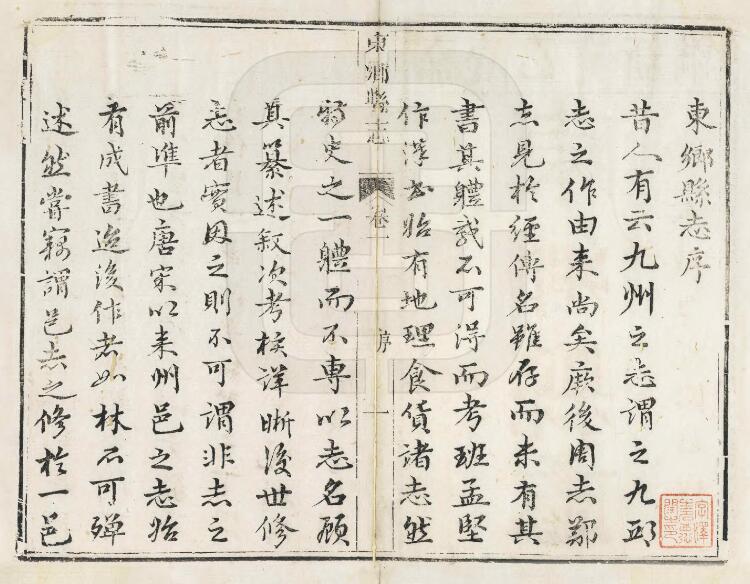 東鄉縣志序
昔人有云九州之志謂之九邱
志之作由來尚矣厥後周志鄭
志見於經傳名雖存而未有其
書其軆裁不可得而考班孟堅
作漢書始有地理食貨諸志然
東鄉縣志
卷一
序
一
猶史之一軆而不專以志名顧
其纂述叙次考核詳晰後世修
志者實因之則不可謂非志之
前準也唐宋以來州邑之志始
有成書迨後作者如林不可殫
述然嘗竊謂邑志之修於一邑